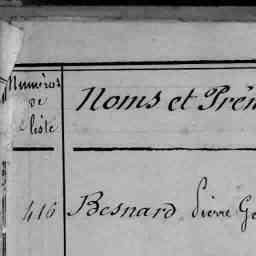 Numéros
de
liste
Noms et Prén
416 Besnard Pierre Ge